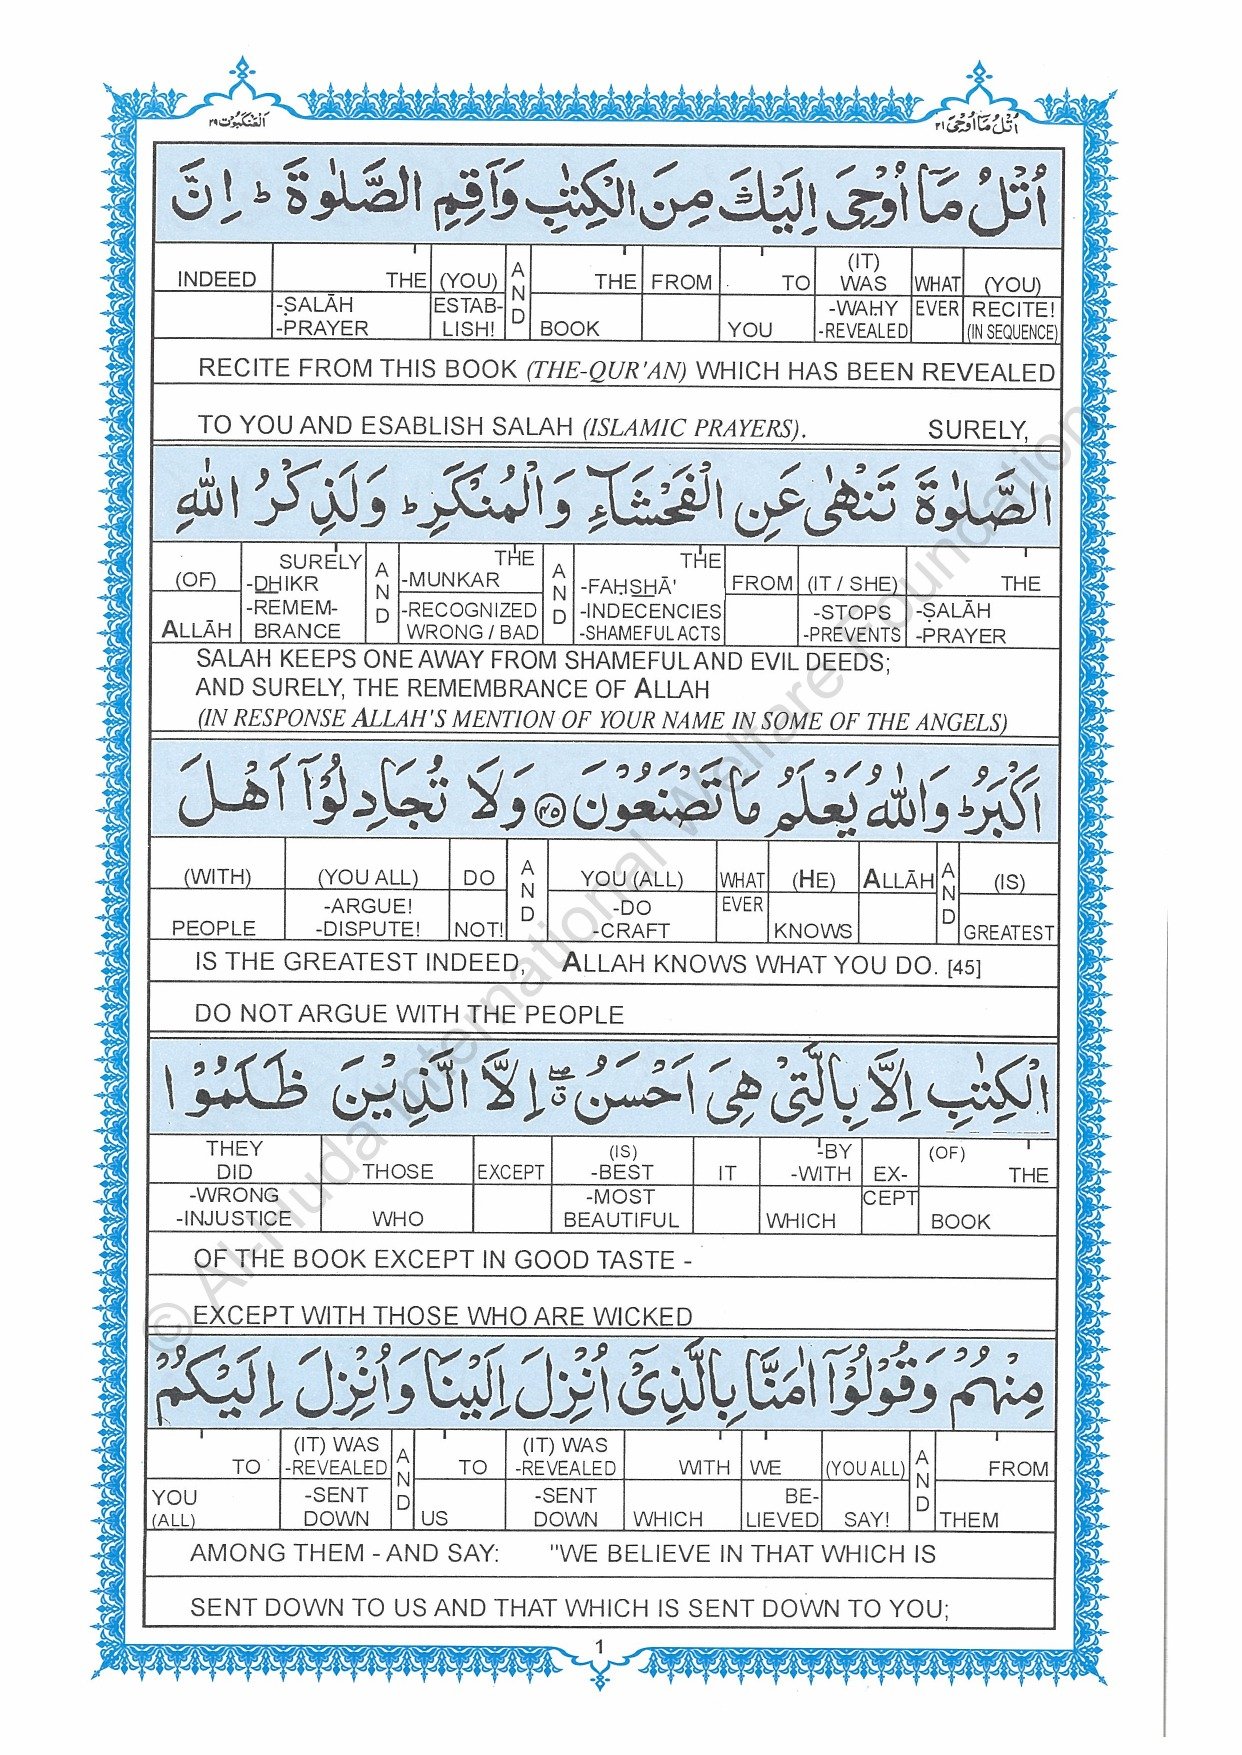 اَلْعَنْكَبُوْت ٢٩
اُتْلُ مَآ اُوْحِیَ ٢١
اُتْلُ مَآ اُوْحِیَ اِلَیْكَ مِنَ الْكِتٰبِ وَاَقِمِ الصَّلٰوةَ ؕ اِنَّ
INDEED THE (YOU) AND THE FROM TO (IT) WAS WHAT (YOU)
-SALĀH -PRAYER ESTAB-LISH! BOOK YOU -WAHY -REVEALED EVER RECITE! (IN SEQUENCE)
RECITE FROM THIS BOOK (THE-QUR'AN) WHICH HAS BEEN REVEALED
TO YOU AND ESABLISH SALAH (ISLAMIC PRAYERS). SURELY,
الصَّلٰوةَ تَنْهٰی عَنِ الْفَحْشَآءِ وَالْمُنْكَرِ ؕ وَلَذِكْرُ اللّٰهِ
(OF) SURELY -DHIKR AND THE -MUNKAR AND THE -FAḤSHĀ' FROM (IT / SHE) THE
ALLĀH -REMEM-BRANCE -RECOGNIZED WRONG / BAD -INDECENCIES -SHAMEFUL ACTS -STOPS -PREVENTS -ṢALĀH -PRAYER
SALAH KEEPS ONE AWAY FROM SHAMEFUL AND EVIL DEEDS;
AND SURELY, THE REMEMBRANCE OF ALLAH
(IN RESPONSE ALLAH'S MENTION OF YOUR NAME IN SOME OF THE ANGELS)
اَكْبَرُ ؕ وَاللّٰهُ یَعْلَمُ مَا تَصْنَعُوْنَ ﴿۴۵﴾ وَلَا تُجَادِلُوْۤا اَهْلَ
(WITH) (YOU ALL) DO AND YOU (ALL) WHAT (HE) ALLĀH AND (IS)
PEOPLE -ARGUE! -DISPUTE! NOT! -DO -CRAFT EVER KNOWS GREATEST
IS THE GREATEST INDEED, ALLAH KNOWS WHAT YOU DO. [45]
DO NOT ARGUE WITH THE PEOPLE
الْكِتٰبِ اِلَّا بِالَّتِیْ هِیَ اَحْسَنُ ۖ اِلَّا الَّذِیْنَ ظَلَمُوْا
THEY DID THOSE EXCEPT (IS) -BEST IT -BY -WITH EX- (OF) THE
-WRONG -INJUSTICE WHO -MOST BEAUTIFUL WHICH CEPT BOOK
OF THE BOOK EXCEPT IN GOOD TASTE -
EXCEPT WITH THOSE WHO ARE WICKED
مِنْهُمْ وَقُوْلُوْۤا اٰمَنَّا بِالَّذِیْۤ اُنْزِلَ اِلَیْنَا وَاُنْزِلَ اِلَیْكُمْ
TO (IT) WAS -REVEALED AND TO (IT) WAS -REVEALED WITH WE (YOU ALL) AND FROM
YOU (ALL) -SENT DOWN US -SENT DOWN WHICH BE-LIEVED SAY! THEM
AMONG THEM - AND SAY: "WE BELIEVE IN THAT WHICH IS
SENT DOWN TO US AND THAT WHICH IS SENT DOWN TO YOU;
1
© Al-Huda International Welfare Foundation